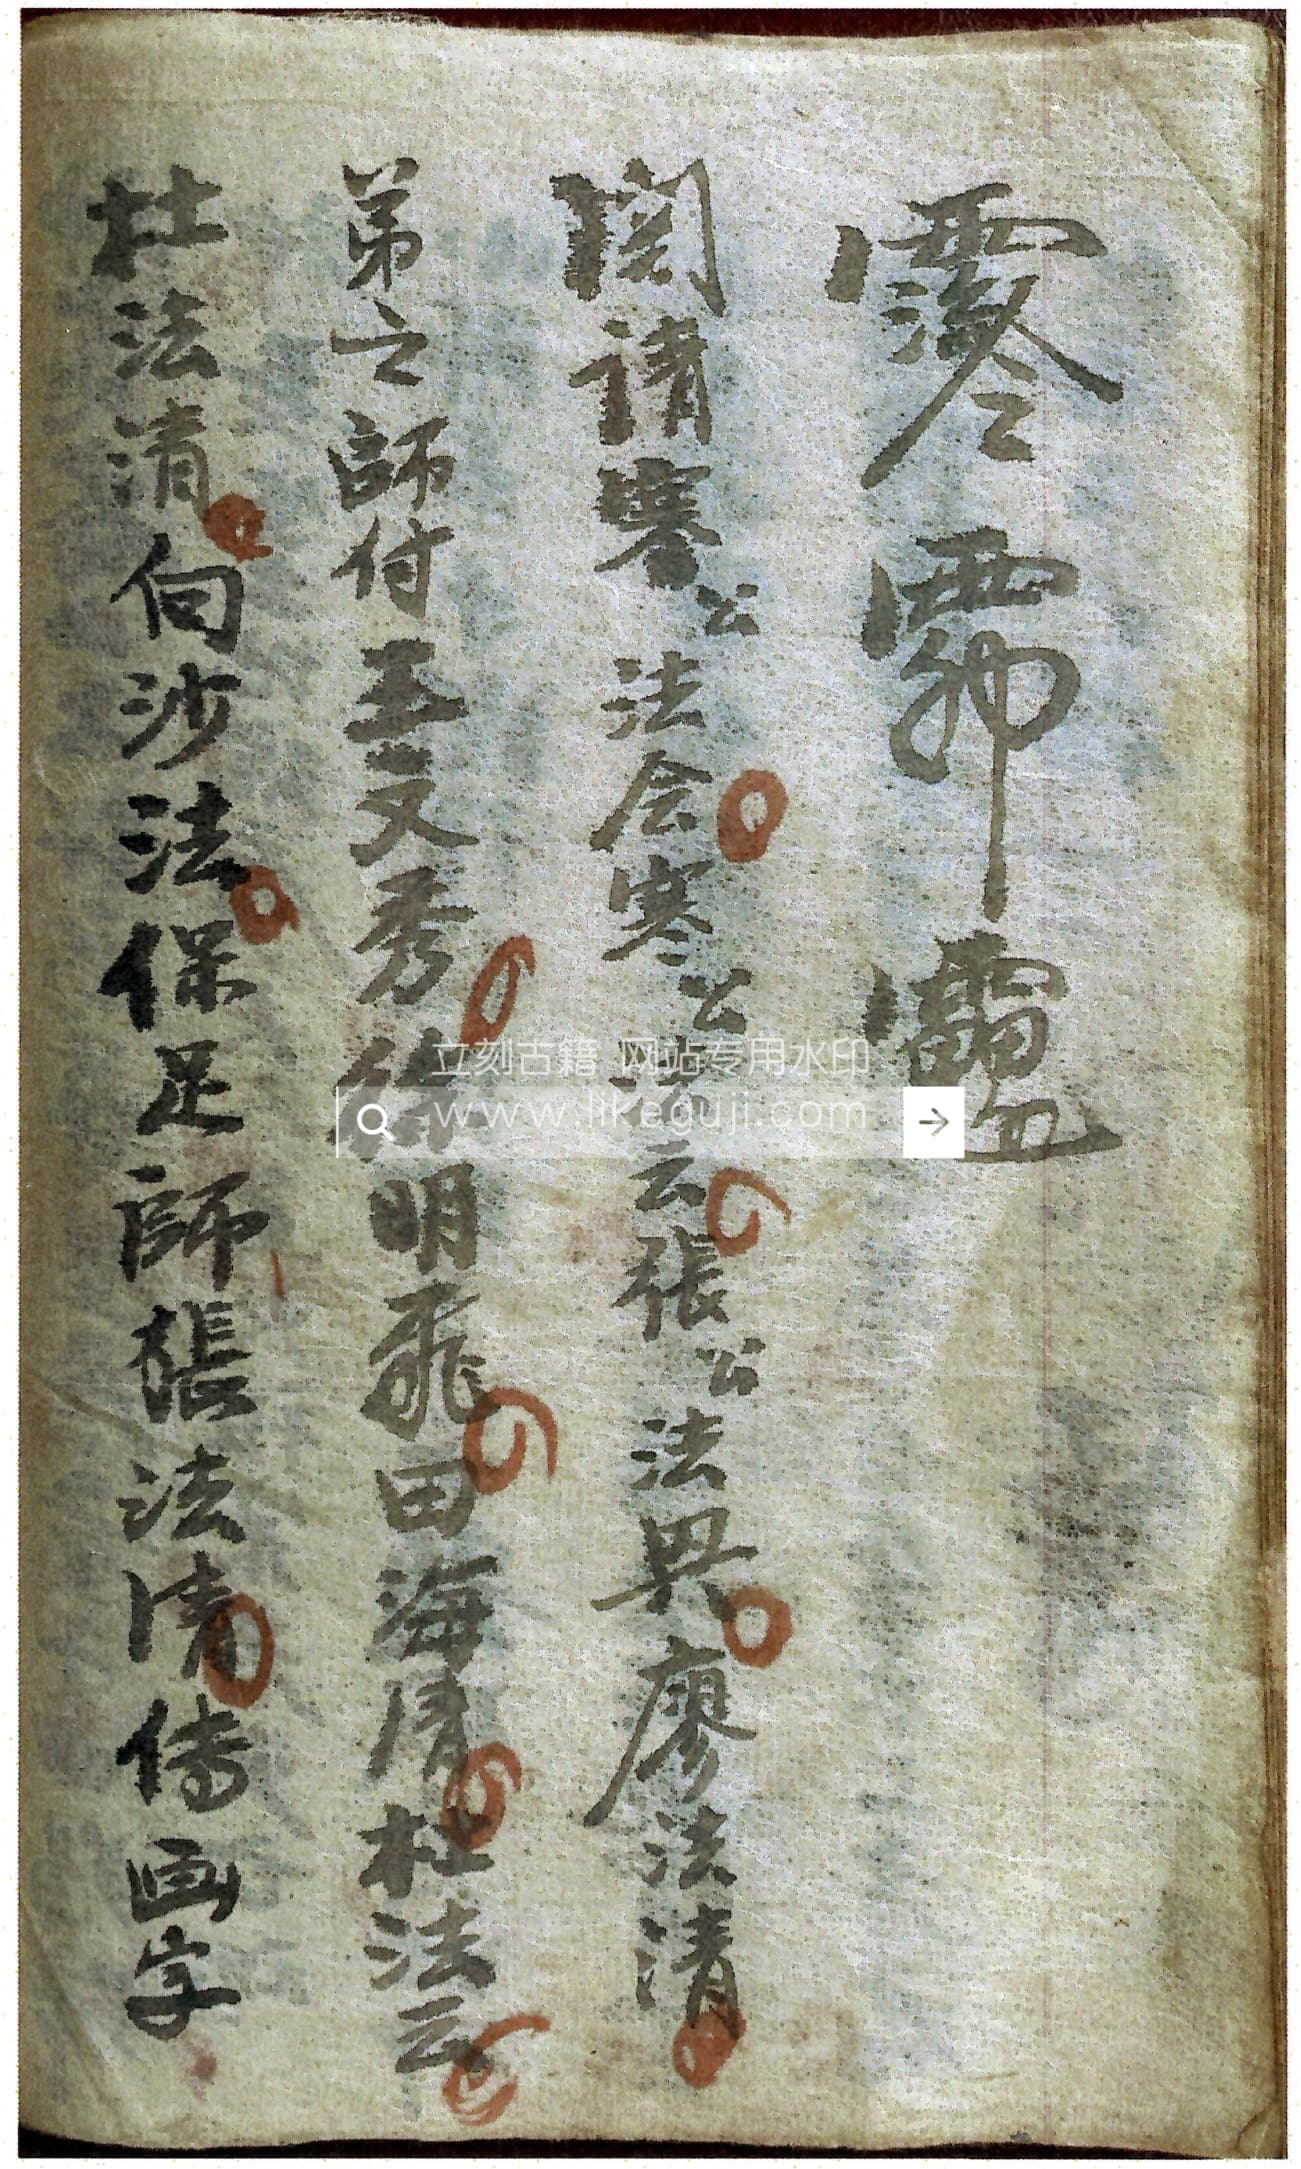 関请寒公法会寒公法云張公法興廖法清
弟之師付王文秀明飛田海清杜法云
杜法清向沙法保足師張法清傳画字
立刻古籍 网站专用水印
www.likeguji.com